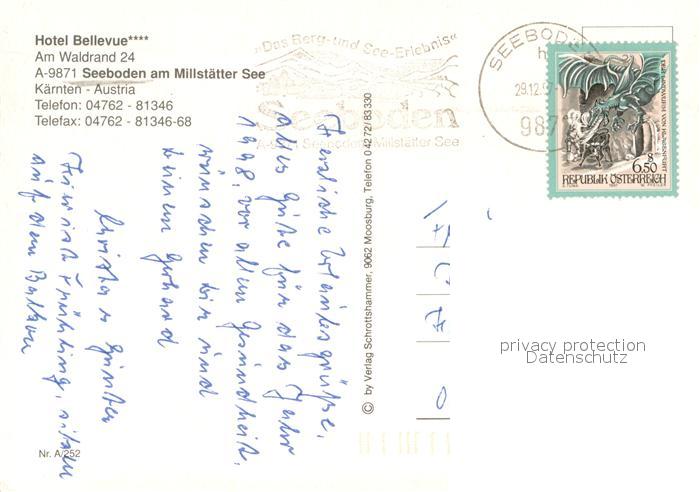 Hotel Bellevue****
Am Waldrand 24
A-9871 Seeboden am Millstätter See
Kärnten - Austria
Telefon: 04762 - 81346
Telefax: 04762 - 81346-68
„Das Berg- und See-Erlebnis"
Seeboden
A-9871 Seeboden am Millstätter See
SEEBODEN
29.12.97
987
DER LINDWURM VON KLAGENFURT
8
6.50
REPUBLIK ÖSTERREICH
1997
Herzliche Urlaubsgrüße,
alles Gute für das Jahr
1998, vor allem Gesundheit,
wünschen wir und
Gerhard
Christa u. Günter
Hier ist Frühling, sitzen
auf dem Balkon
© by Verlag Schrottshammer, 9062 Moosburg, Telefon 04272/83330
Nr. A/252
privacy protection
Datenschutz